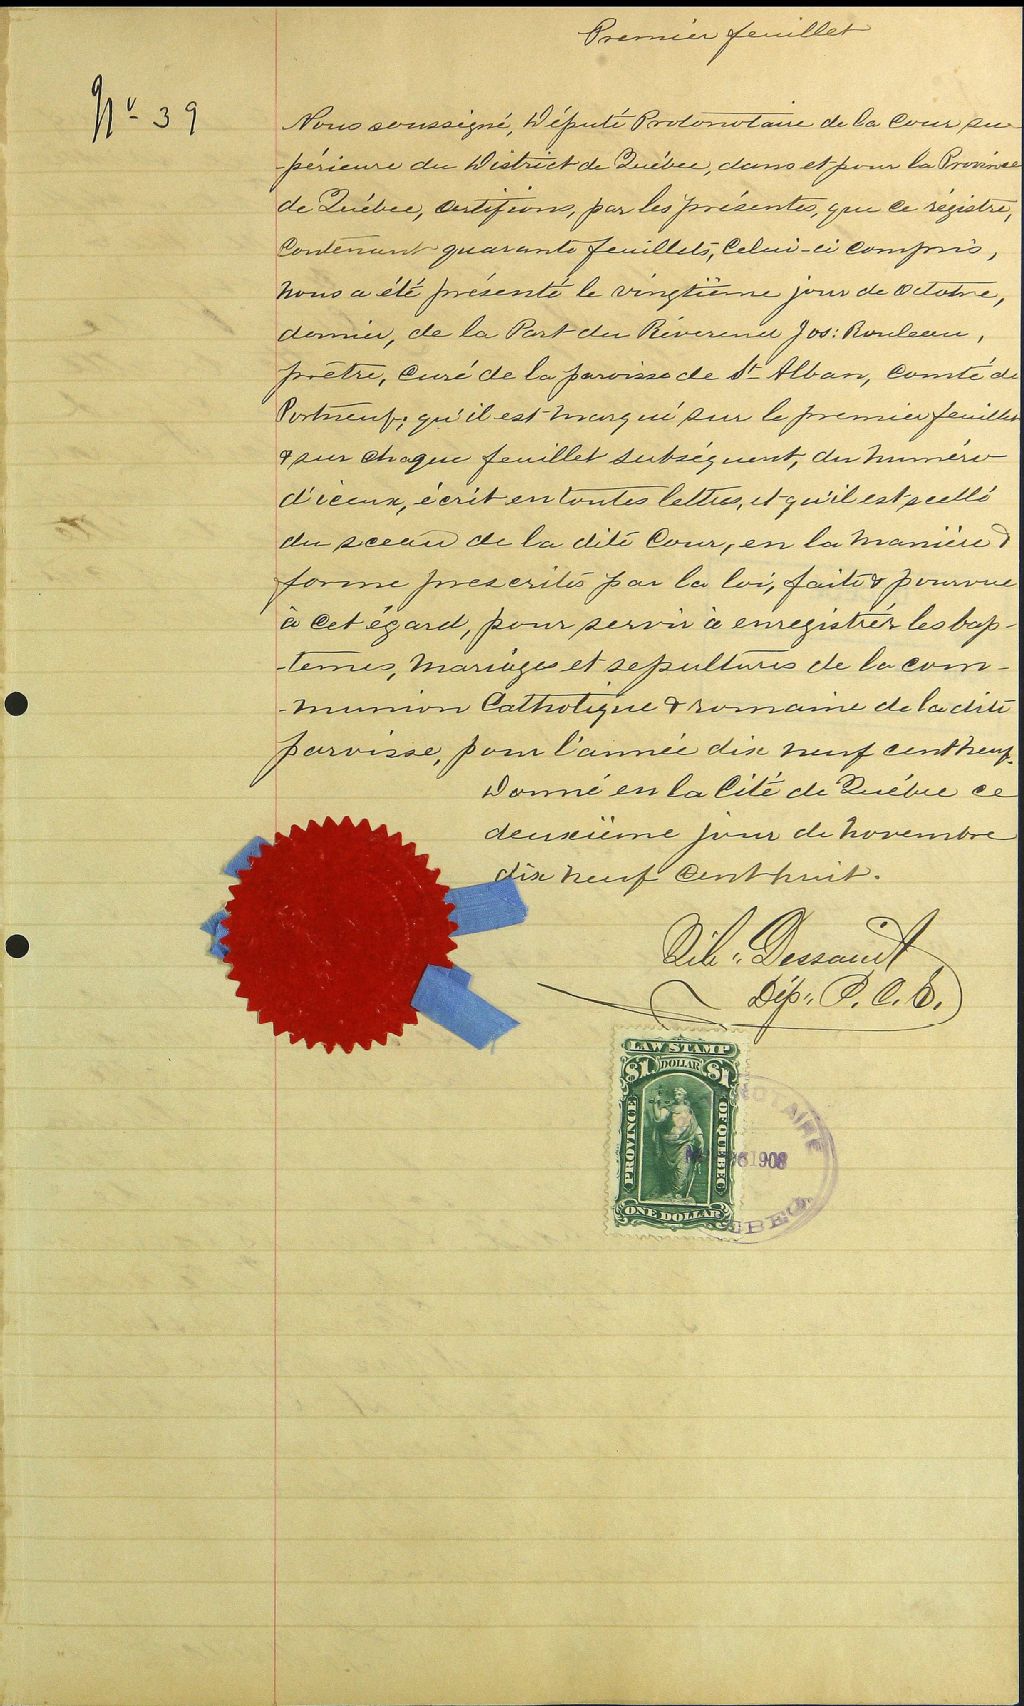 Premier feuillet
No 39
Nous soussigné, Député Protonotaire de la Cour su-
-périeure du District de Québec, dans et pour la Province
de Québec, Certifions, par les présentes, que ce régistre,
Contenant quarante feuillets, Celui-ci compris,
nous a été présenté le vingtième jour de Octobre,
dernier, de la Part du Révérend Jos: Rouleau,
prêtre, Curé de la paroisse de St Alban, Comté de
Portneuf; qu'il est marqué sur le premier feuillet
& sur chaque feuillet subséquent, du numéro
d'iceux, écrit en toutes lettres, et qu'il est scellé
du sceau de la dite Cour, en la manière &
forme prescrites par la loi, faite & pourvue
à cet égard, pour servir à enregistrér les bap-
-temes, mariages et sepultures de la com-
-munion Catholique & romaine de la dite
paroisse, pour l'année dix neuf cent neuf.
Donné en la Cité de Québec ce
deuxième jour de Novembre
dix neuf cent huit.
Dessault
Dép: P. C. S.
LAW STAMP
$1 DOLLAR $1
PROVINCE OF QUEBEC
ONE DOLLAR
1908